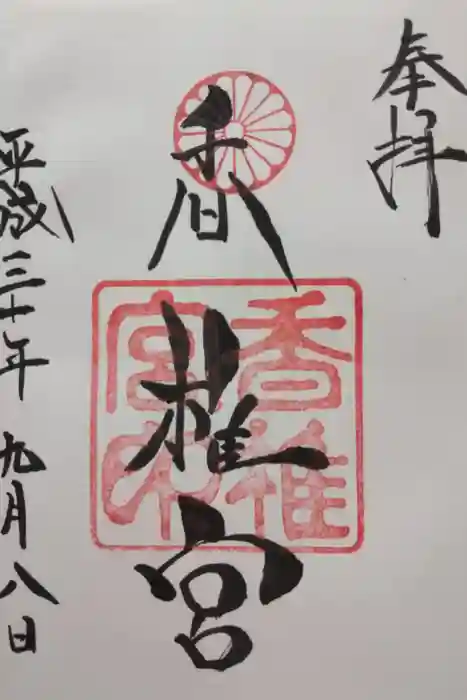 奉拝
香椎宮
香椎宮印
平成三十年九月八日